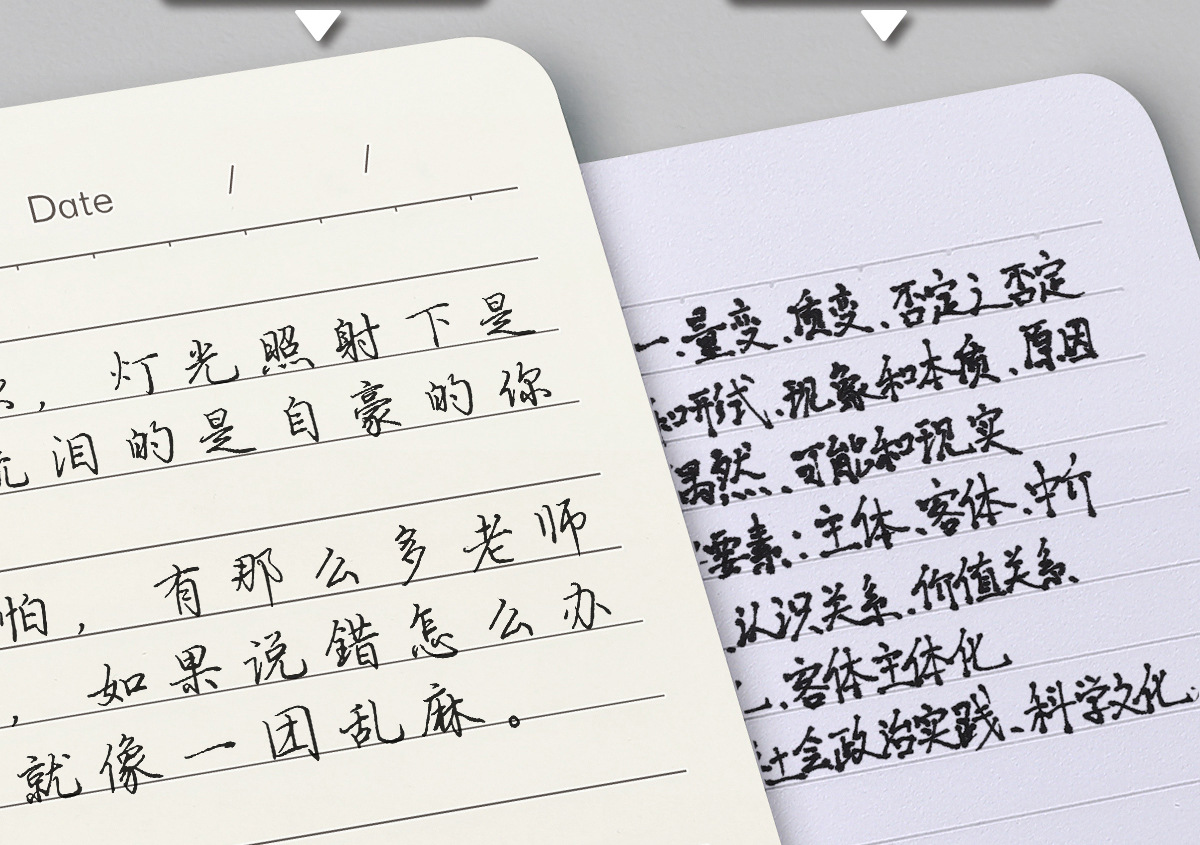 Date / /
，灯光照射下是
沆泪的是自豪的你
怕，有那么多老师
，如果说错怎么办
就像一团乱麻。
一、量变、质变、否定之否定
和形式、现象和本质、原因
偶然、可能和现实
要素：主体、客体、中介
认识关系、价值关系
、客体主体化
社会政治实践、科学文化